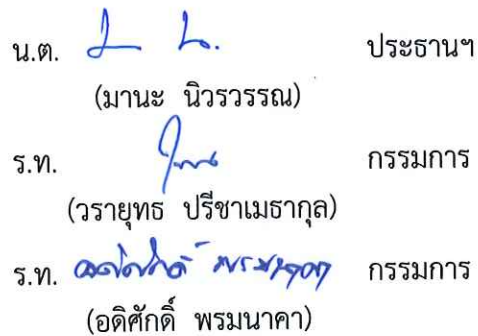 น.ต. ประธานฯ
(มานะ นิวรวรรณ)
ร.ท. กรรมการ
(วรายุทธ ปรีชาเมธากุล)
ร.ท. อดิศักดิ์ พรมนาคา กรรมการ
(อดิศักดิ์ พรมนาคา)